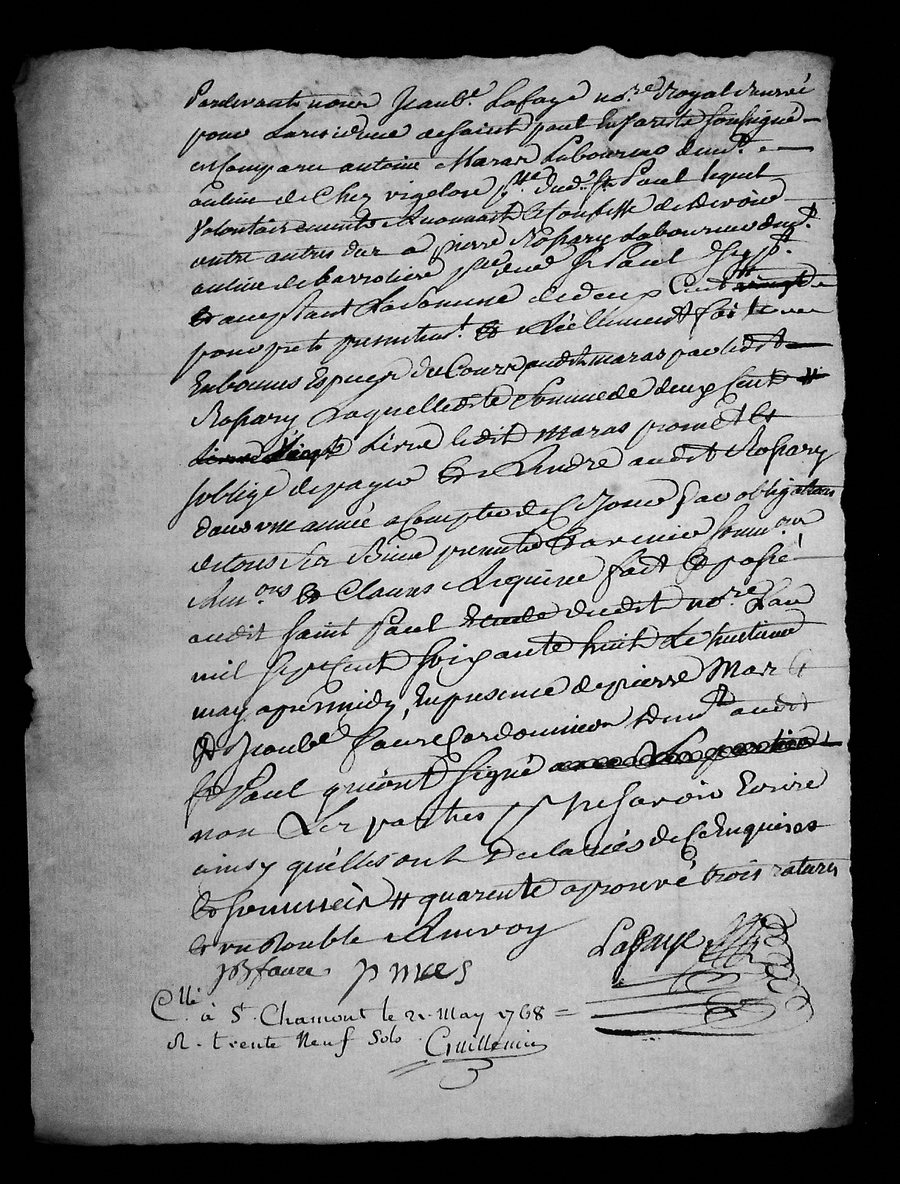 Pardevant nous Jean Bt. Lafaye nore. Royal réservé
pour la résidence de Saint paul En Jarets Soussigné
est Comparu antoine Maras Laboureur demt. au
lieu de Chez vigelon psse. dud. St. Paul lequel
volontairement Reconnait & Confesse de devoir
outre autres dus a pierre Rospary Laboureur demt.
au lieu de barrolière psse. dud. St. Paul
& acceptant La Somme de deux Cent # vingt
pour prêt présentemt. & Réellement fait
En bonnes Espèces du Cours audit maras par ledit
Rospary Laquelle dite Somme de deux Cent #
Livres vingt Livre ledit maras promet &
soblige de payer & Rendre audit Rospary
dans une année a Compter de Ce Jour par obligation
de tous Ses Biens présents & avenir
& Clauses Requise fait & passé
audit Saint Paul Etude dudit nore. Lan
mil Sept Cent Soixante huit Le huitieme
may apres midy, En presence de pierre Mares
& Jean Bt. faure Cordonnier demt. audit
St. Paul qui ont Signé
non Les parties pour ne Savoir Ecrire
ainsy qu'elles ont Declarées de Ce Enquises
& Sommées # quarente aprouvé trois ratures
& un Renvoy
JB faure P mres Lafaye
Cllé. à St. Chamont le 21. May 1768 =
R. trente Neuf Sols Guillemin